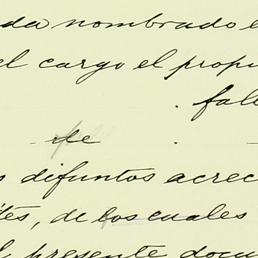 da nombrado e
el cargo el propi
fall
de
s difuntos acrec
tes, de los cuales
l presente docu